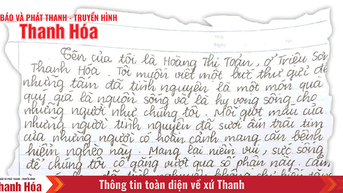 BÁO VÀ PHÁT THANH - TRUYỀN HÌNH
Thanh Hóa
Tên của tôi là Hoàng Thị Toán, ở Triệu Sơn
Thanh Hóa. Tôi muốn viết một bức thư gửi để
những tấm đã tình nguyện là một món quà
quý giá là nguồn sống và là hy vọng sống cho
những người như chúng tôi. Mỗi giọt máu của
những người tình nguyện đã sưởi ấm trái tim
của những người có hoàn cảnh mang căn bệnh
hiểm nghèo này. Mang lại niềm vui, sức sống
để chúng tôi cố gắng vượt qua số phận này. Cảm
Thanh Hóa
Thông tin toàn diện về xứ Thanh